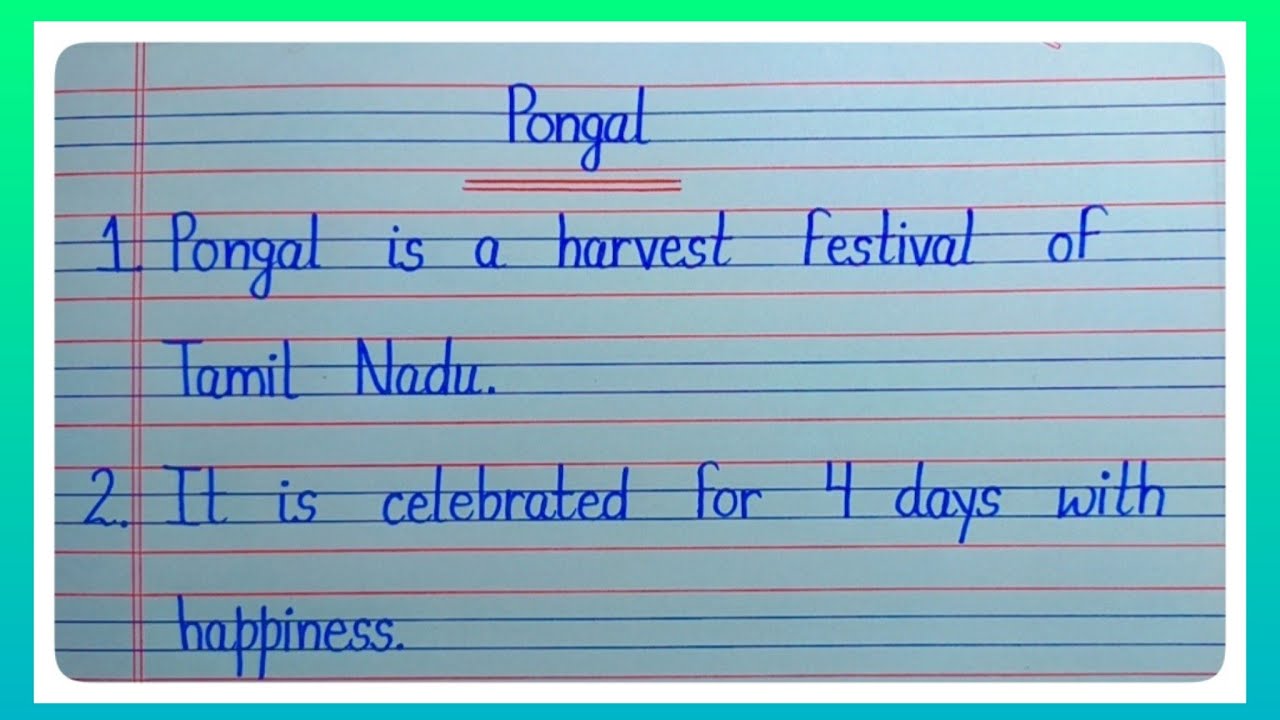 Pongal
1. Pongal is a harvest festival of
Tamil Nadu.
2. It is celebrated for 4 days with
happiness.